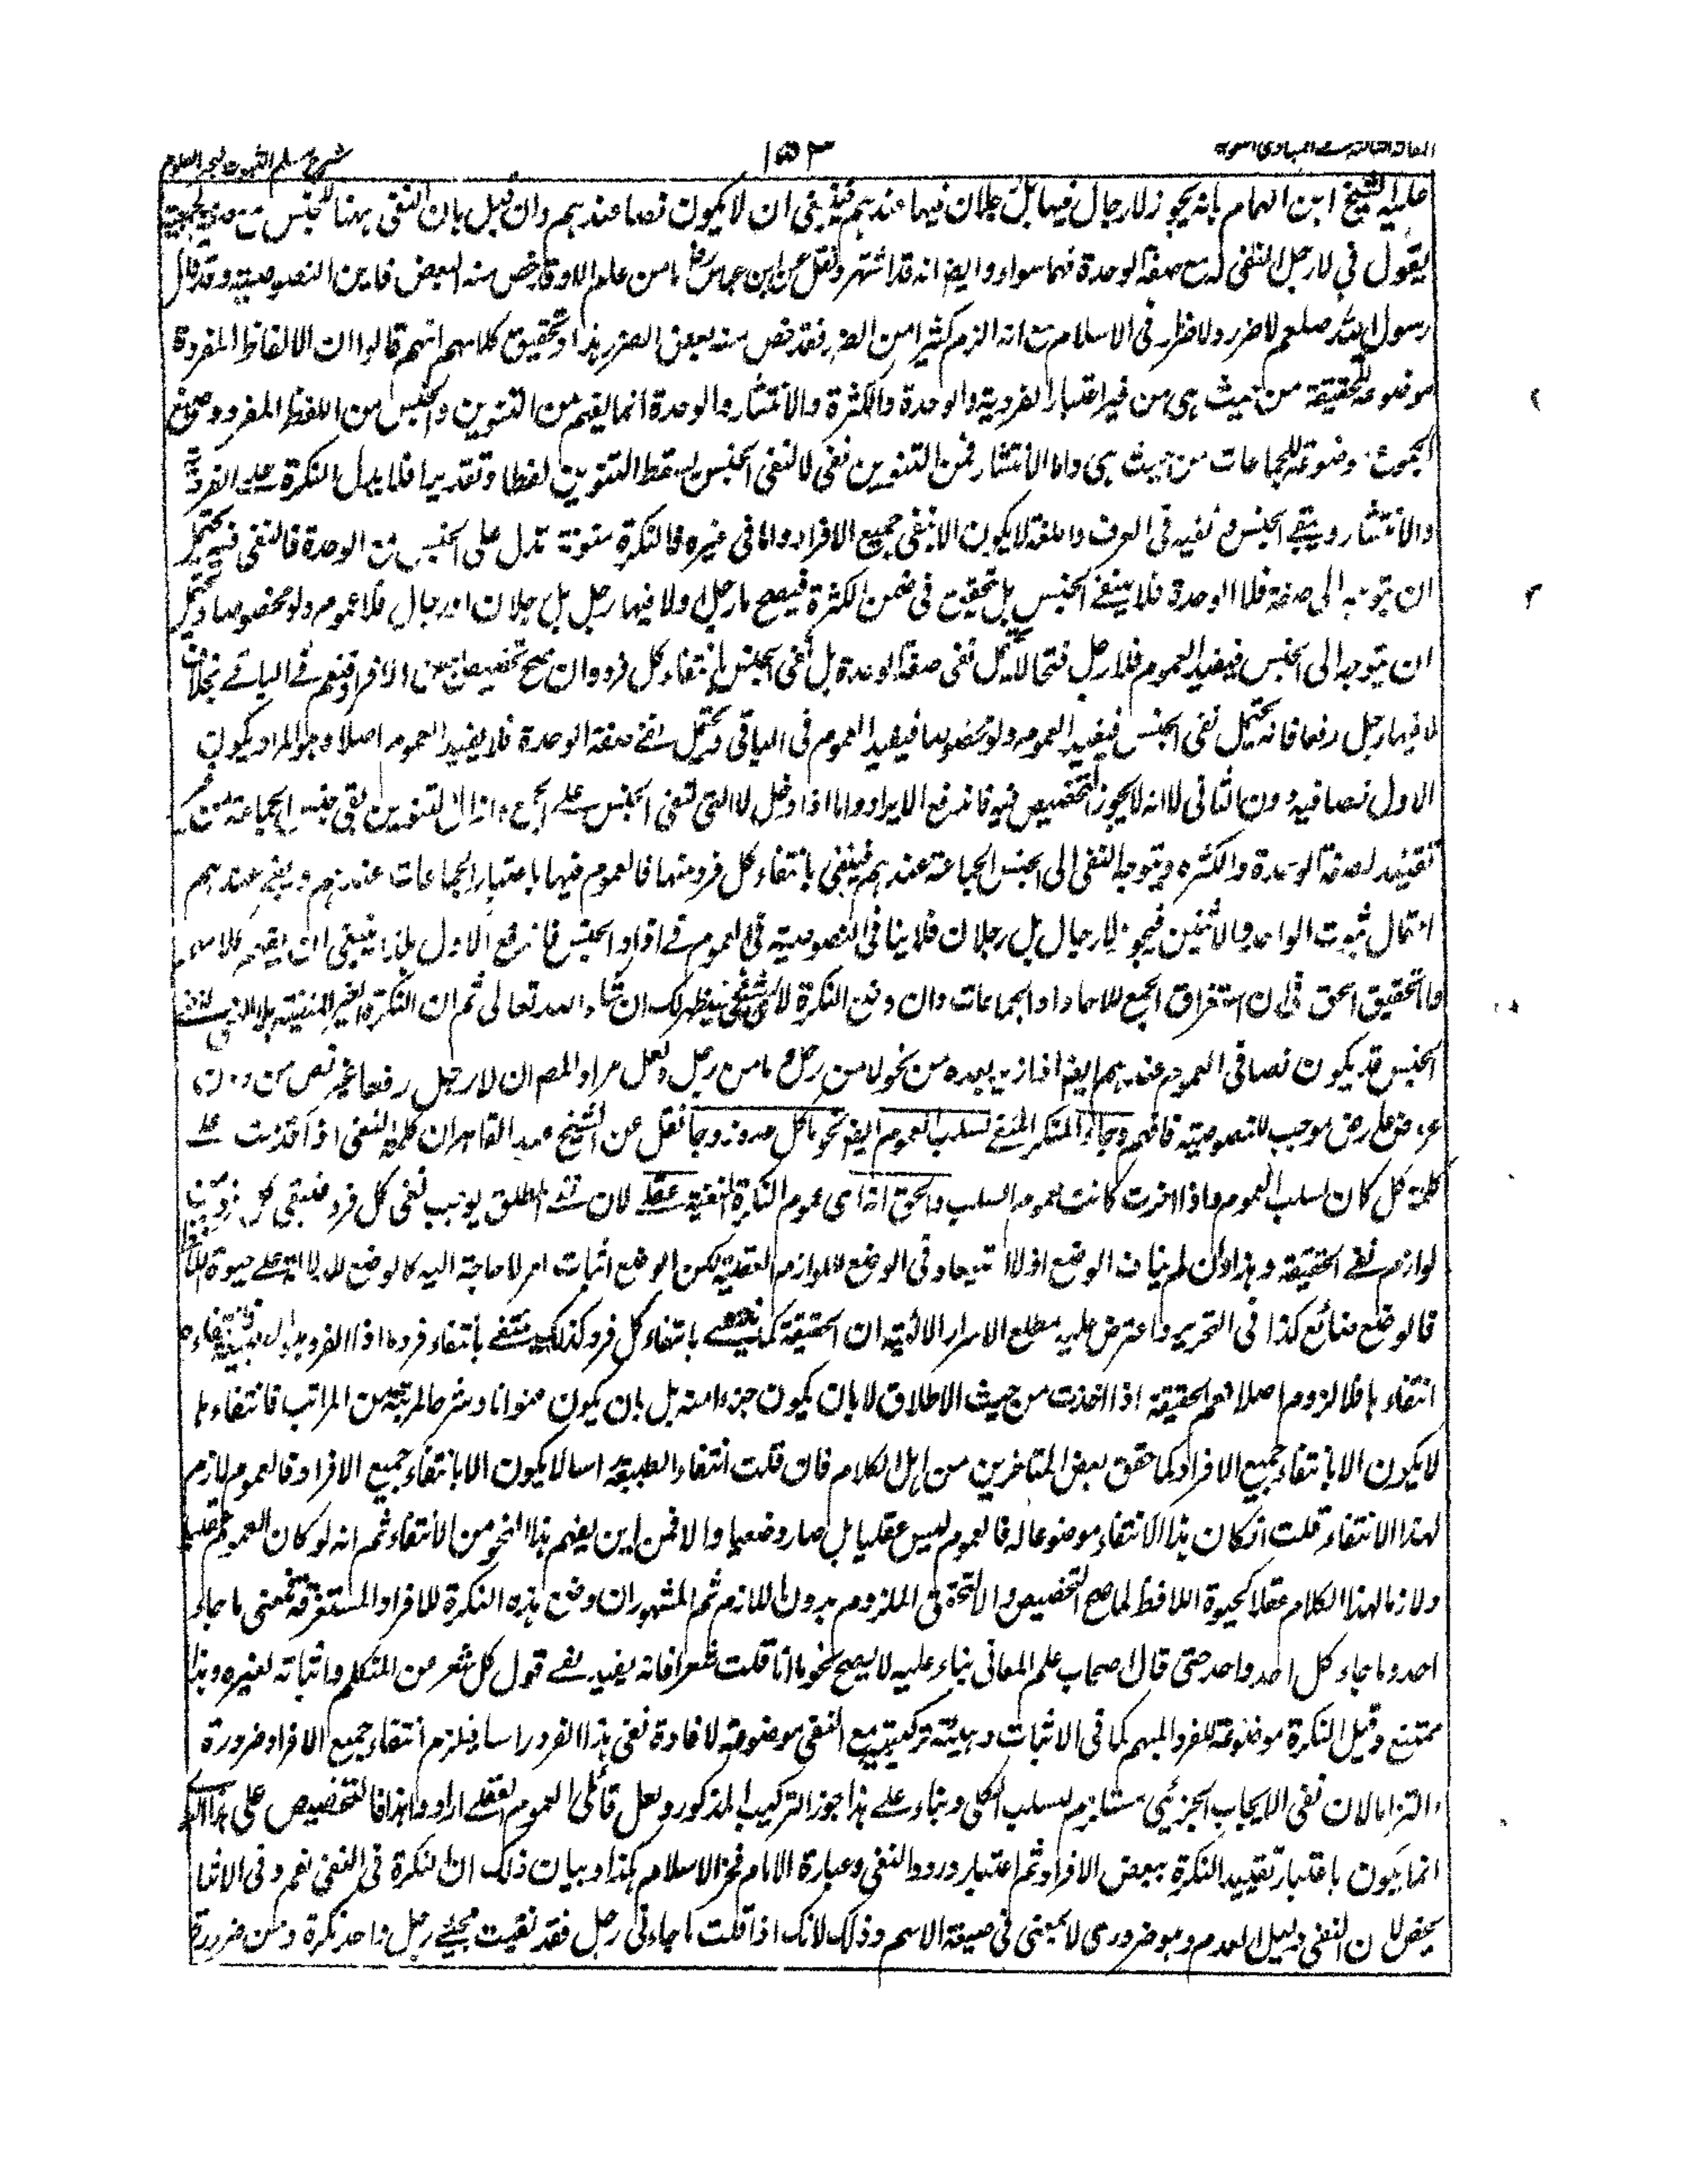 شرح مسلم الثبوت لبحر العلوم
١٥٣
المقالة الثالثة في المبادي اللغوية
عليه الشيخ ابن الهمام بانه يجوز لا رجال فيها بل رجلان فيها عندهم فينبغي ان لا يكون نصا عندهم وان قيل بان النفي ههنا للجنس مع صفة الجمعية
يقول في لا رجل النفي له مع صفة الوحدة فهما سواء وايضا انه قد اشتهر ونقل عن ابن عباس ما من عام الا وقد خص منه البعض فاين النصوصية وقد قال
رسول الله صلعم لا ضرر ولا ضرار في الاسلام مع انه الزم كثيرا من الضرر فقد خص منه بعض الضرر هذا وتحقيق كلامهم انهم قالوا ان الالفاظ المفردة
موضوعة للحقيقة من حيث هي من غير اعتبار الفردية والوحدة والكثرة والانتشار والوحدة انما يفهم من التنوين والجنس من اللفظ المفرد وصيغ
الجموع موضوعة للجماعات من حيث هي واما الانتشار فمن التنوين ففي لا لنفي الجنس يسقط التنوين لفظا وتقديرا فلا يدل النكرة على الفردية
والانتشار ويبقى الجنس ونفيه في العرف واللغة لا يكون الا بنفي جميع الافراد واما في غيره فالنكرة منونة تدل على الجنس مع الوحدة فالنفي فيه يحتمل
ان يتوجه الى صفة الوحدة فلا ينفي الجنس بل تحقيقه في ضمن الكثرة فيصح ما رجل ولا فيها رجل بل رجلان او رجال فلا عموم ولو مخصوصا ويحتمل
ان يتوجه الى الجنس فيفيد العموم فلا رجل فتحا لا يحتمل نفي صفة الوحدة بل نفي الجنس بانتفاء كل فرد وان صح تخصيص بعض الافراد فيعم في الباقي بخلاف
لا فيها رجل رفعا فانه يحتمل نفي الجنس فيفيد العموم ولو مخصوصا فيفيد العموم في الباقي ويحتمل نفي صفة الوحدة فلا يفيد العموم اصلا وهو المراد بكون
الاول نصا فيه دون الثاني لا انه لا يجوز التخصيص فيه فاندفع الايراد واما اذا دخل لا التي لنفي الجنس على الجمع وازال التنوين بقي جنس الجماعة من غير
تقييد لصفة الوحدة والكثرة ويتوجه النفي الى الجنس الجماعة عندهم فينفي بانتفاء كل فرد منها فالعموم فيها باعتبار الجماعات عندهم ويبقى عندهم
احتمال ثبوت الواحد والاثنين فيجوز لا رجال بل رجلان فلا ينافي النصوصية في العموم في افراد الجنس فاندفع الاول هكذا ينبغي ان يفهم كلامهم
واما التحقيق الحق في ان استغراق الجمع للآحاد او الجماعات وان وضع النكرة لاي شيء فسيظهر لك ان شاء الله تعالى ثم ان النكرة الغير المنفية بلا التي لنفي
الجنس قد يكون نصا في العموم عندهم ايضا اذا زيد بعده من نحو لا من رجل وما من رجل ولعل مراد المصم ان لا رجل رفعا غير نص من دون
عروض عارض موجب للنصوصية فافهم وجاء المنكر المنفي لسلب العموم ايضا نحو ما كل عدد زوجا نقل عن الشيخ عبد القاهر ان كلمة النفي اذا قدمت على
كلمة كل كان لسلب العموم واذا اخرت كانت لعموم السلب والحق انه اي عموم النكرة المنفية عقلي لان نفي المطلق يوجب نفي كل فرد
لوازم نفي الحقيقة وهذا وان لم يناف الوضع اذ لا استبعاد في الوضع للوازم العقلية لكن الوضع اثبات امر لا حاجة اليه كالوضع للدلالة على حيوة اللافظ
فالوضع ضائع كذا في التحرير واعترض عليه مطلع الاسرار الالهية ان الحقيقة كما تنتفي بانتفاء كل فرد كذلك تنتفي بانتفاء فرد
انتفاء ما فلا لزوم اصلا نعم الحقيقة اذا اخذت من حيث الاطلاق لا بان يكون جزءا منه بل بان يكون عنوانا وشرحا لمرتبة من المراتب فانتفاءها
لا يكون الا بانتفاء جميع الافراد كما حقق بعض المتاخرين من اهل الكلام فان قلت انتفاء الطبيعة راسا لا يكون الا بانتفاء جميع الافراد فالعموم لازم
لهذا الانتفاء قلت ان كان هذا الانتفاء موضوعا له فالعموم ليس عقليا بل صار وضعيا والا فمن اين يفهم هذا النحو من الانتفاء ثم انه لو كان العموم عقليا
ولازما لهذا الكلام عقلا كحيوة اللافظ لما صح التخصيص والا لتحقق الملزوم بدون اللازم ثم المشهور ان وضع هذه النكرة للافراد المستغرقة فمعنى ما جاء
احد وما جاء كل احد واحد حتى قال اصحاب علم المعاني بناء عليه لا يصح نحو ما انا قلت شعرا فانه يفيد نفي قول كل شعر من المتكلم واثباته لغيره وهذا
ممتنع وقيل النكرة موضوعة للفرد المبهم كما في الاثبات وهيئة تركيبية مع النفي موضوعة لافادة نفي هذا الفرد راسا فيلزم انتفاء جميع الافراد ضرورة
والتزاما لان نفي الايجاب الجزئي مستلزم للسلب الكلي وبناء على هذا جوز التركيب المذكور ولعل قائلي العموم العقلي ارادوا هذا فالتخصيص على هذا
انما يكون باعتبار تقييد النكرة ببعض الافراد ثم اعتبار ورود النفي وعبارة الامام فخر الاسلام هكذا وبيان ذلك ان النكرة في النفي تعم وفي الاثبات
يخص لان النفي دليل العدم وهو ضروري لا بمعنى في صيغة الاسم وذلك لانك اذا قلت ما جاءني رجل فقد نفيت مجيء رجل واحد نكرة ومن ضرورة